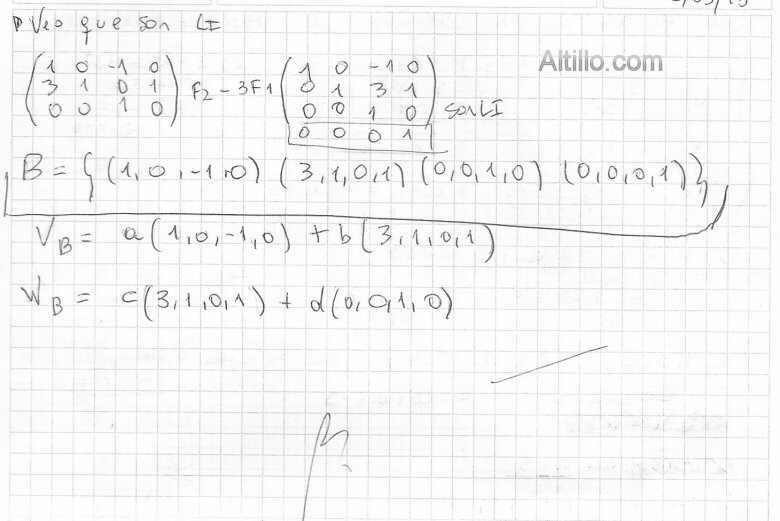 Veo que son LI
Altillo.com
1 0 -1 0
3 1 0 1
0 0 1 0
F2 - 3F1
1 0 -1 0
0 1 3 1
0 0 1 0
0 0 0 1
son LI
B = { (1,0,-1,0) (3,1,0,1) (0,0,1,0) (0,0,0,1) }
V_B = a(1,0,-1,0) + b(3,1,0,1)
W_B = c(3,1,0,1) + d(0,0,1,0)